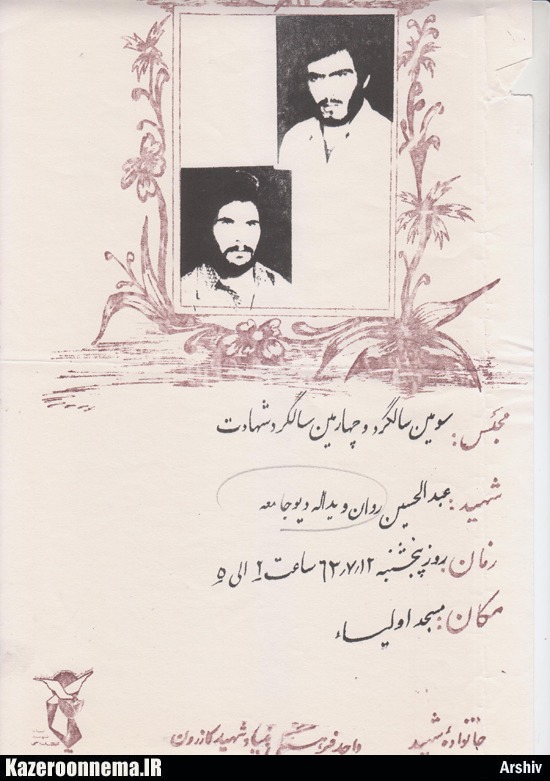 مجلس: سومین سالگرد و چهارمین سالگرد شهادت
شهید: عبدالحسین روان و یداله دیوجامعه
زمان: روز پنجشنبه ۶۳٫۷٫۱۲ ساعت ۲ الی ۵
مکان: مسجد اولیاء
خانوادهٔ شهید واحد فرهنگی بنیاد شهید کازرون
Kazeroonnema.IR
Arshiv